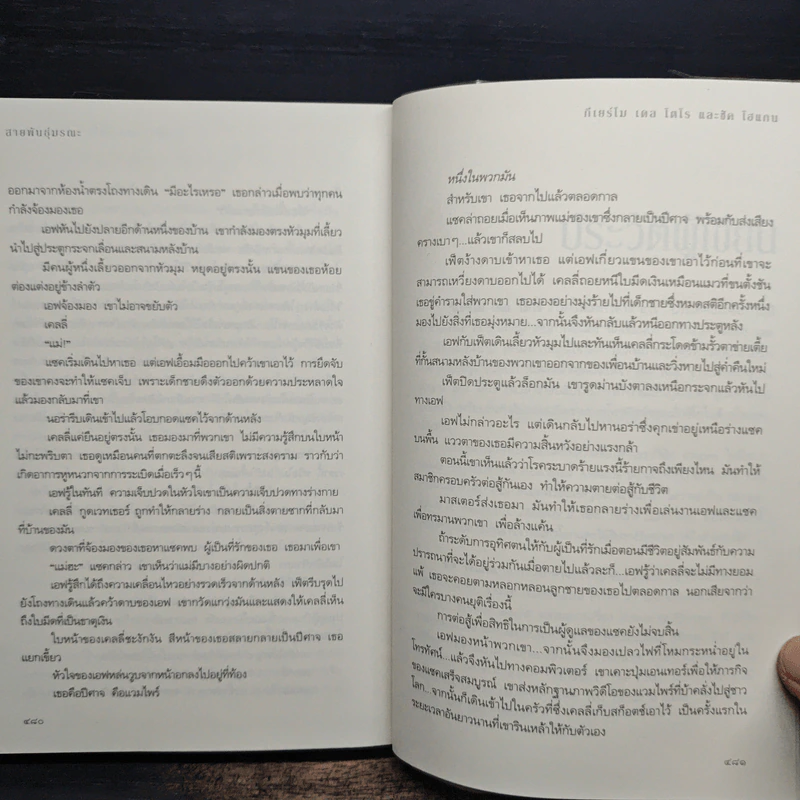 สายพันธุ์มรณะ
ออกมาจากห้องน้ำตรงโถงทางเดิน “มีอะไรเหรอ” เธอกล่าวเมื่อพบว่าทุกคน
กำลังจ้องมองเธอ
เอฟหันไปยังปลายอีกด้านหนึ่งของบ้าน เขากำลังมองตรงหัวมุมที่เลี้ยว
นำไปสู่ประตูกระจกเลื่อนและสนามหลังบ้าน
มีคนผู้หนึ่งเลี้ยวออกจากหัวมุม หยุดอยู่ตรงนั้น แขนของเธอห้อย
ต่องแต่งอยู่ข้างลำตัว
เอฟจ้องมอง เขาไม่อาจขยับตัว
เคลลี่
“แม่!”
แซคเริ่มเดินไปหาเธอ แต่เอฟเอื้อมมือออกไปคว้าเขาเอาไว้ การยึดจับ
ของเขาคงจะทำให้แซคเจ็บ เพราะเด็กชายดึงตัวออกด้วยความประหลาดใจ
แล้วมองกลับมาที่เขา
นอร่ารีบเดินเข้าไปแล้วโอบกอดแซคไว้จากด้านหลัง
เคลลี่แค่ยืนอยู่ตรงนั้น เธอมองมาที่พวกเขา ไม่มีความรู้สึกบนใบหน้า
ไม่กะพริบตา เธอดูเหมือนคนที่ตกตะลึงจนเสียสติเพราะสงคราม ราวกับว่า
เกิดอาการหูหนวกจากการระเบิดเมื่อเร็วๆ นี้
เอฟรู้ในทันที ความเจ็บปวดในหัวใจเขาเป็นความเจ็บปวดทางร่างกาย
เคลลี่ กูดเวทเธอร์ ถูกทำให้กลายร่าง กลายเป็นสิ่งตายซากที่กลับมา
ที่บ้านของมัน
ดวงตาที่จ้องมองของเธอหาแซคพบ ผู้เป็นที่รักของเธอ เธอมาเพื่อเขา
“แม่ฮะ” แซคกล่าว เขาเห็นว่าแม่มีบางอย่างผิดปกติ
เอฟรู้สึกได้ถึงความเคลื่อนไหวอย่างรวดเร็วจากด้านหลัง เฟ็ตรีบรุดไป
ยังโถงทางเดินแล้วคว้าดาบของเอฟ เขากวัดแกว่งมันและแสดงให้เคลลี่เห็น
ถึงใบมีดที่เป็นธาตุเงิน
ใบหน้าของเคลลี่ชะงักงัน สีหน้าของเธอสลายกลายเป็นปีศาจ เธอ
แยกเขี้ยว
หัวใจของเอฟหล่นวูบจากหน้าอกลงไปอยู่ที่ท้อง
เธอคือปีศาจ คือแวมไพร์
๔๘๐
กีเยร์โม เดล โตโร และชัค โฮแกน
หนึ่งในพวกมัน
สำหรับเขา เธอจากไปแล้วตลอดกาล
แซคล่าถอยเมื่อเห็นภาพแม่ของเขาซึ่งกลายเป็นปีศาจ พร้อมกับส่งเสียง
ครางเบาๆ...แล้วเขาก็สลบไป
เฟ็ตง้างดาบเข้าหาเธอ แต่เอฟเกี่ยวแขนของเขาเอาไว้ก่อนที่เขาจะ
สามารถเหวี่ยงดาบออกไปได้ เคลลี่ถอยหนีใบมีดเงินเหมือนแมวที่ขนตั้งชัน
เธอขู่คำรามใส่พวกเขา เธอมองอย่างมุ่งร้ายไปที่เด็กชายซึ่งหมดสติอีกครั้งหนึ่ง
มองไปยังสิ่งที่เธอมุ่งหมาย...จากนั้นจึงหันกลับแล้วหนีออกทางประตูหลัง
เอฟกับเฟ็ตเดินเลี้ยวหัวมุมไปและทันเห็นเคลลี่กระโดดข้ามรั้วตาข่ายเตี้ย
ที่กั้นสนามหลังบ้านของพวกเขาออกจากของเพื่อนบ้านและวิ่งหายไปสู่ค่ำคืนใหม่
เฟ็ตปิดประตูแล้วล็อกมัน เขารูดม่านบังตาลงเหนือกระจกแล้วหันไป
ทางเอฟ
เอฟไม่กล่าวอะไร แต่เดินกลับไปหานอร่าซึ่งคุกเข่าอยู่เหนือร่างแซค
บนพื้น แววตาของเธอมีความสิ้นหวังอย่างแรงกล้า
ตอนนี้เขาเห็นแล้วว่าโรคระบาดร้ายแรงนี้ร้ายกาจถึงเพียงไหน มันทำให้
สมาชิกครอบครัวต่อสู้กันเอง ทำให้ความตายต่อสู้กับชีวิต
มาสเตอร์ส่งเธอมา มันทำให้เธอกลายร่างเพื่อเล่นงานเอฟและแซค
เพื่อทรมานพวกเขา เพื่อล้างแค้น
ถ้าระดับการอุทิศตนให้กับผู้เป็นที่รักเมื่อตอนมีชีวิตอยู่สัมพันธ์กับความ
ปรารถนาที่จะได้อยู่ร่วมกันเมื่อตายไปแล้วละก็...เอฟรู้ว่าเคลลี่จะไม่มีทางยอม
แพ้ เธอจะคอยตามหลอกหลอนลูกชายของเธอไปตลอดกาล นอกเสียจากว่า
จะมีใครบางคนยุติเรื่องนี้
การต่อสู้เพื่อสิทธิในการเป็นผู้ดูแลของแซคยังไม่จบสิ้น
เอฟมองหน้าพวกเขา...จากนั้นจึงมองเปลวไฟที่โหมกระหน่ำอยู่ใน
โทรทัศน์...แล้วจึงหันไปทางคอมพิวเตอร์ เขาเคาะปุ่มเอนเทอร์เพื่อให้ภารกิจ
ของแซคเสร็จสมบูรณ์ เขาส่งหลักฐานภาพวิดีโอของแวมไพร์ที่บ้าคลั่งไปสู่ชาว
โลก...จากนั้นก็เดินเข้าไปในครัวที่ซึ่งเคลลี่เก็บสก็อตช์เอาไว้ เป็นครั้งแรกใน
ระยะเวลาอันยาวนานที่เขารินเหล้าให้กับตัวเอง
๔๘๑